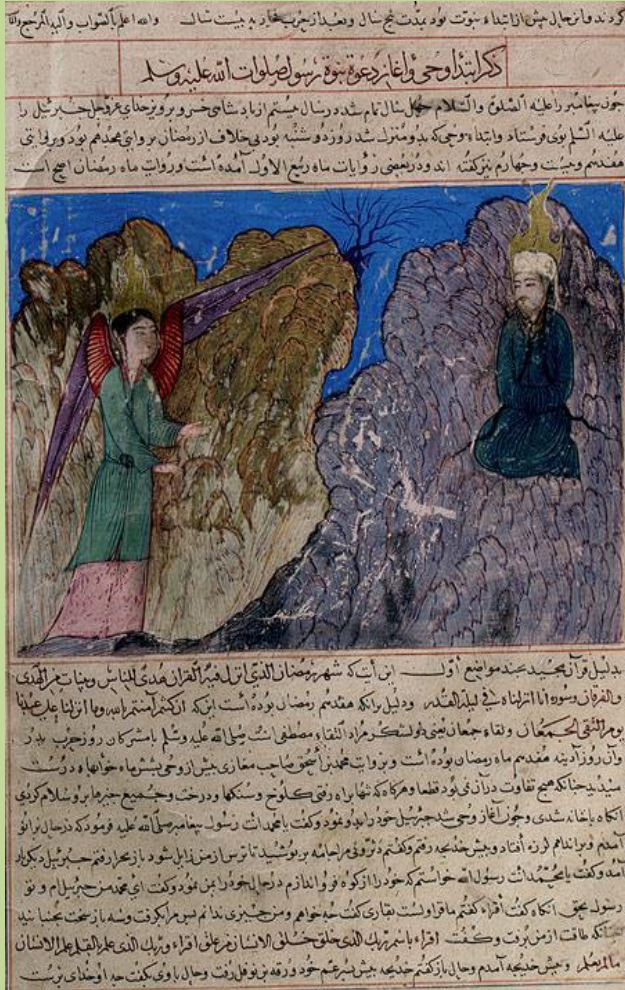 کردند و این حال پیش از ابتداء نبوت بود بمدت پنج سال و بعد از حرب فجار به بیست سال والله اعلم بالصواب والیه المرجع
ذکر ابتداء وحی و اغاز دعوة نبوة رسول صلوات الله علیه وسلم
جون پیغامبر را علیه الصلوة والسلام جهل سال تمام شد در سال بیستم از پادشاهی خسرو پرویز خدای عزوجل جبرئیل را
علیه السلم بوی فرستاد وابتداء وحی که بدو منزل شد روز دوشنبه بود بی خلاف از رمضان بروایتی هجدهم بود وبروایتی
هفدهم وبیست وجهارم نیز کفته اند ودر بعضی روایات ماه ربیع الاول آمده است وروایت ماه رمضان اصح است
بدلیل قرآن مجید بچند مواضع اول این آیت که شهر رمضان الذی انزل فیه القران هدی للناس وبینات من الهدی
والفرقان وسوره انا انزلناه فی لیلة القدر ودلیل برانکه هفدهم رمضان بوده است این که ان کنتم آمنتم بالله وما انزلنا علی عبدنا
یوم التقی الجمعان ولقاء جمعان یعنی دو لشکر مراد التقاء مصطفی است صلی الله علیه وسلم با مشرکان روز حرب بدر
وآن روز آدینه هفدهم ماه رمضان بوده است وبروایت محمد بن اسحق صاحب مغازی بیش از وحی بشش ماه خوابهاء درست
میدید جنانکه هیج تفاوت در آن نمی بود قطعا وهرکاه که تنها براه رفتی کلوخ وسنکها ودرخت وجمیع جیزها برو سلام کردی
انکاه باخانه شدی وجون آغاز وحی شد جبرئیل خود را بدو نمود وکفت یا محمد انت رسول الله پیغامبر صلی الله علیه فرمود که در حال بزانو
آمدم وبر اندام لرزه افتاد وبیش خدیجه رفتم وکفتم دثرونی مرا جامه بر پوشید تا ترس از من زایل شود باز بحرا رفتم جبرئیل دیکربار
آمد وکفت یا محمد انت رسول الله خواستم که خود را از کوه فرو اندازم در حال خود را بمن نمود وکفت ای محمد من جبرئیلم و تو
رسول بحق انکاه کفت اقراء کفتم ما اقرا ولست بقاری کفت جه خوانم ومن جیزی ندانم پس مرا بکرفت وسه بار سخت بجنبانید
جنانکه طاقت از من برفت وکفت اقراء باسم ربک الذی خلق خلق الانسان من علق اقراء وربک الذی علم بالقلم علم الانسان
مالم یعلم وبیش خدیجه آمدم وحال باز کفتم خدیجه بیش پسر عم خود ورقه بن نوفل رفت وحال با وی بکفت